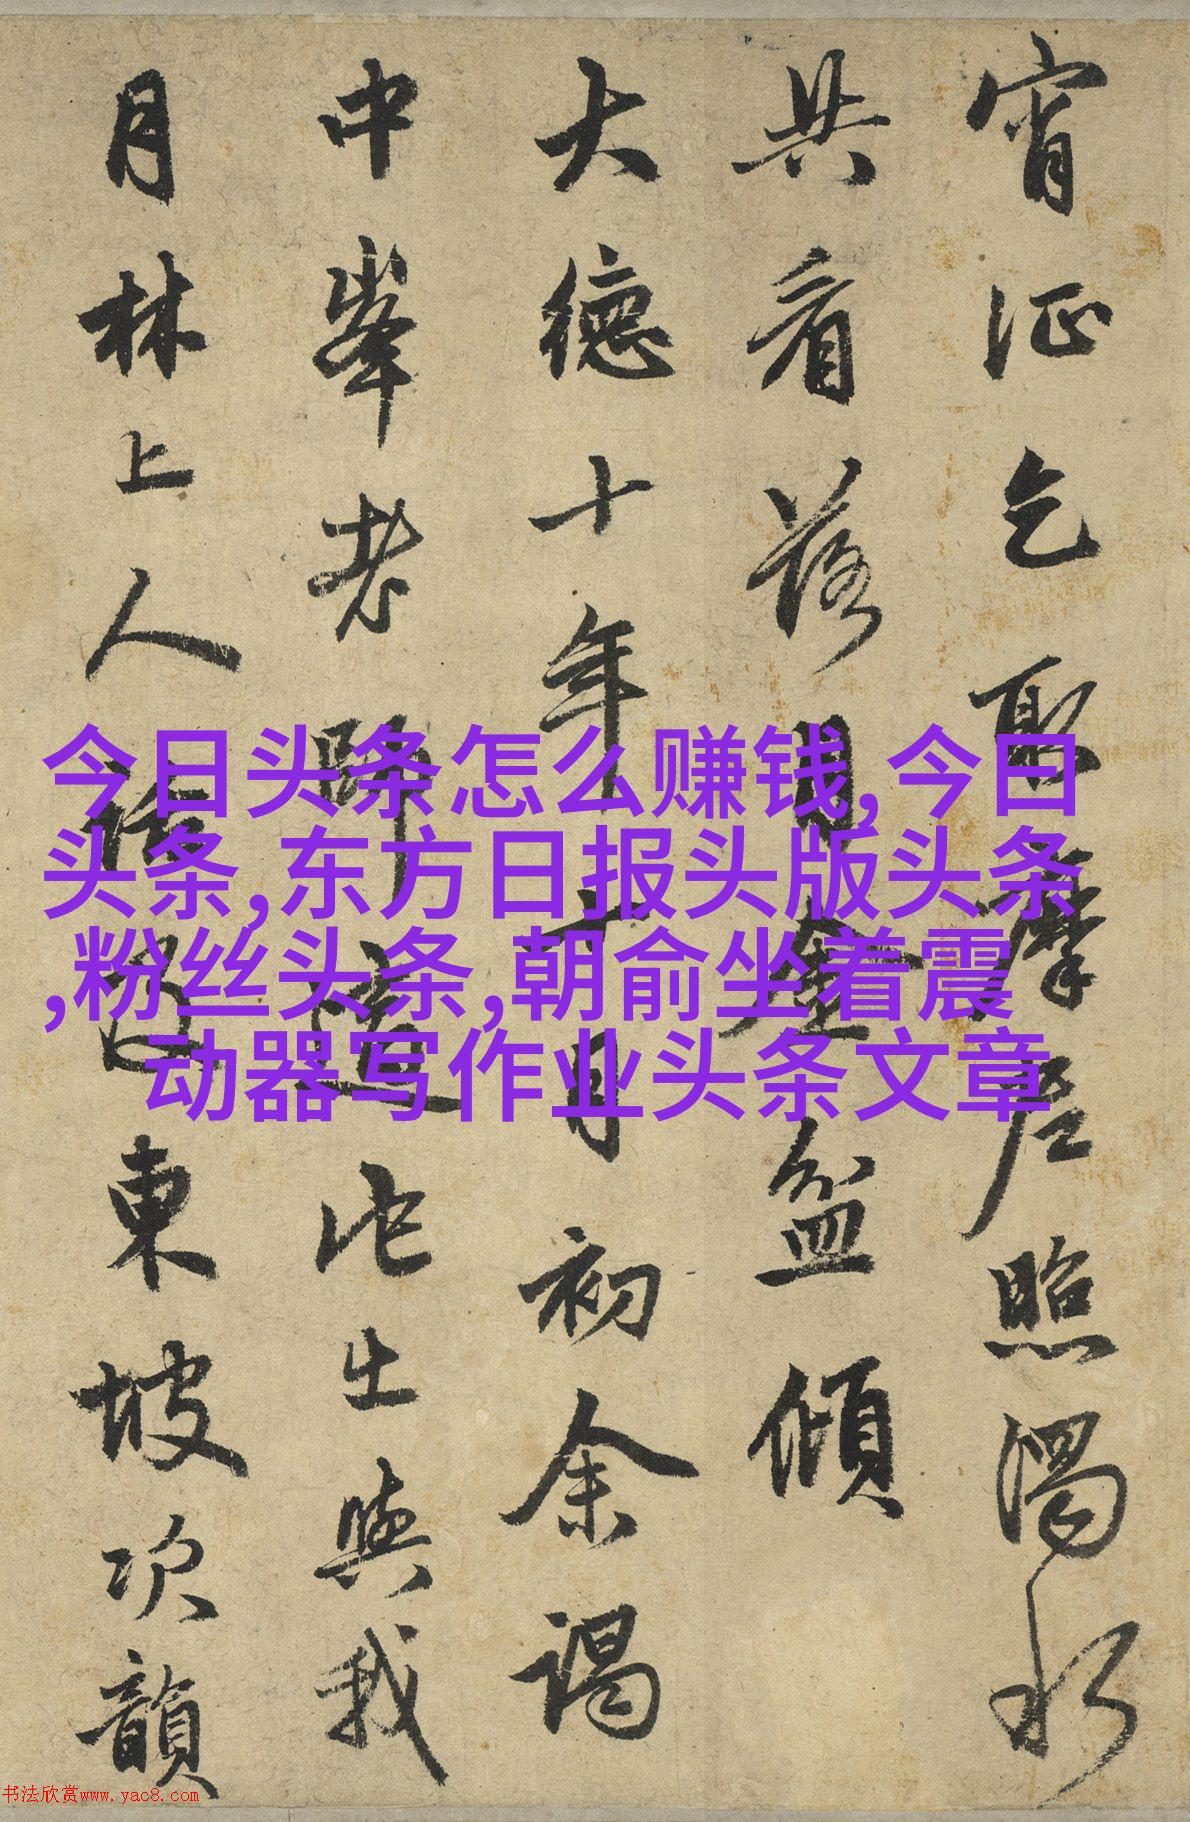 宵征乞取摩尼照濁水
共看落月金盆傾
大德十年十月初余謁
中峯老師道此出與我
月林上人東坡次韻
今日头条怎么赚钱,今曰
头条,东方日报头版头条
,粉丝头条,朝俞坐着震
动器写作业头条文章
书法欣赏www.yac8.com